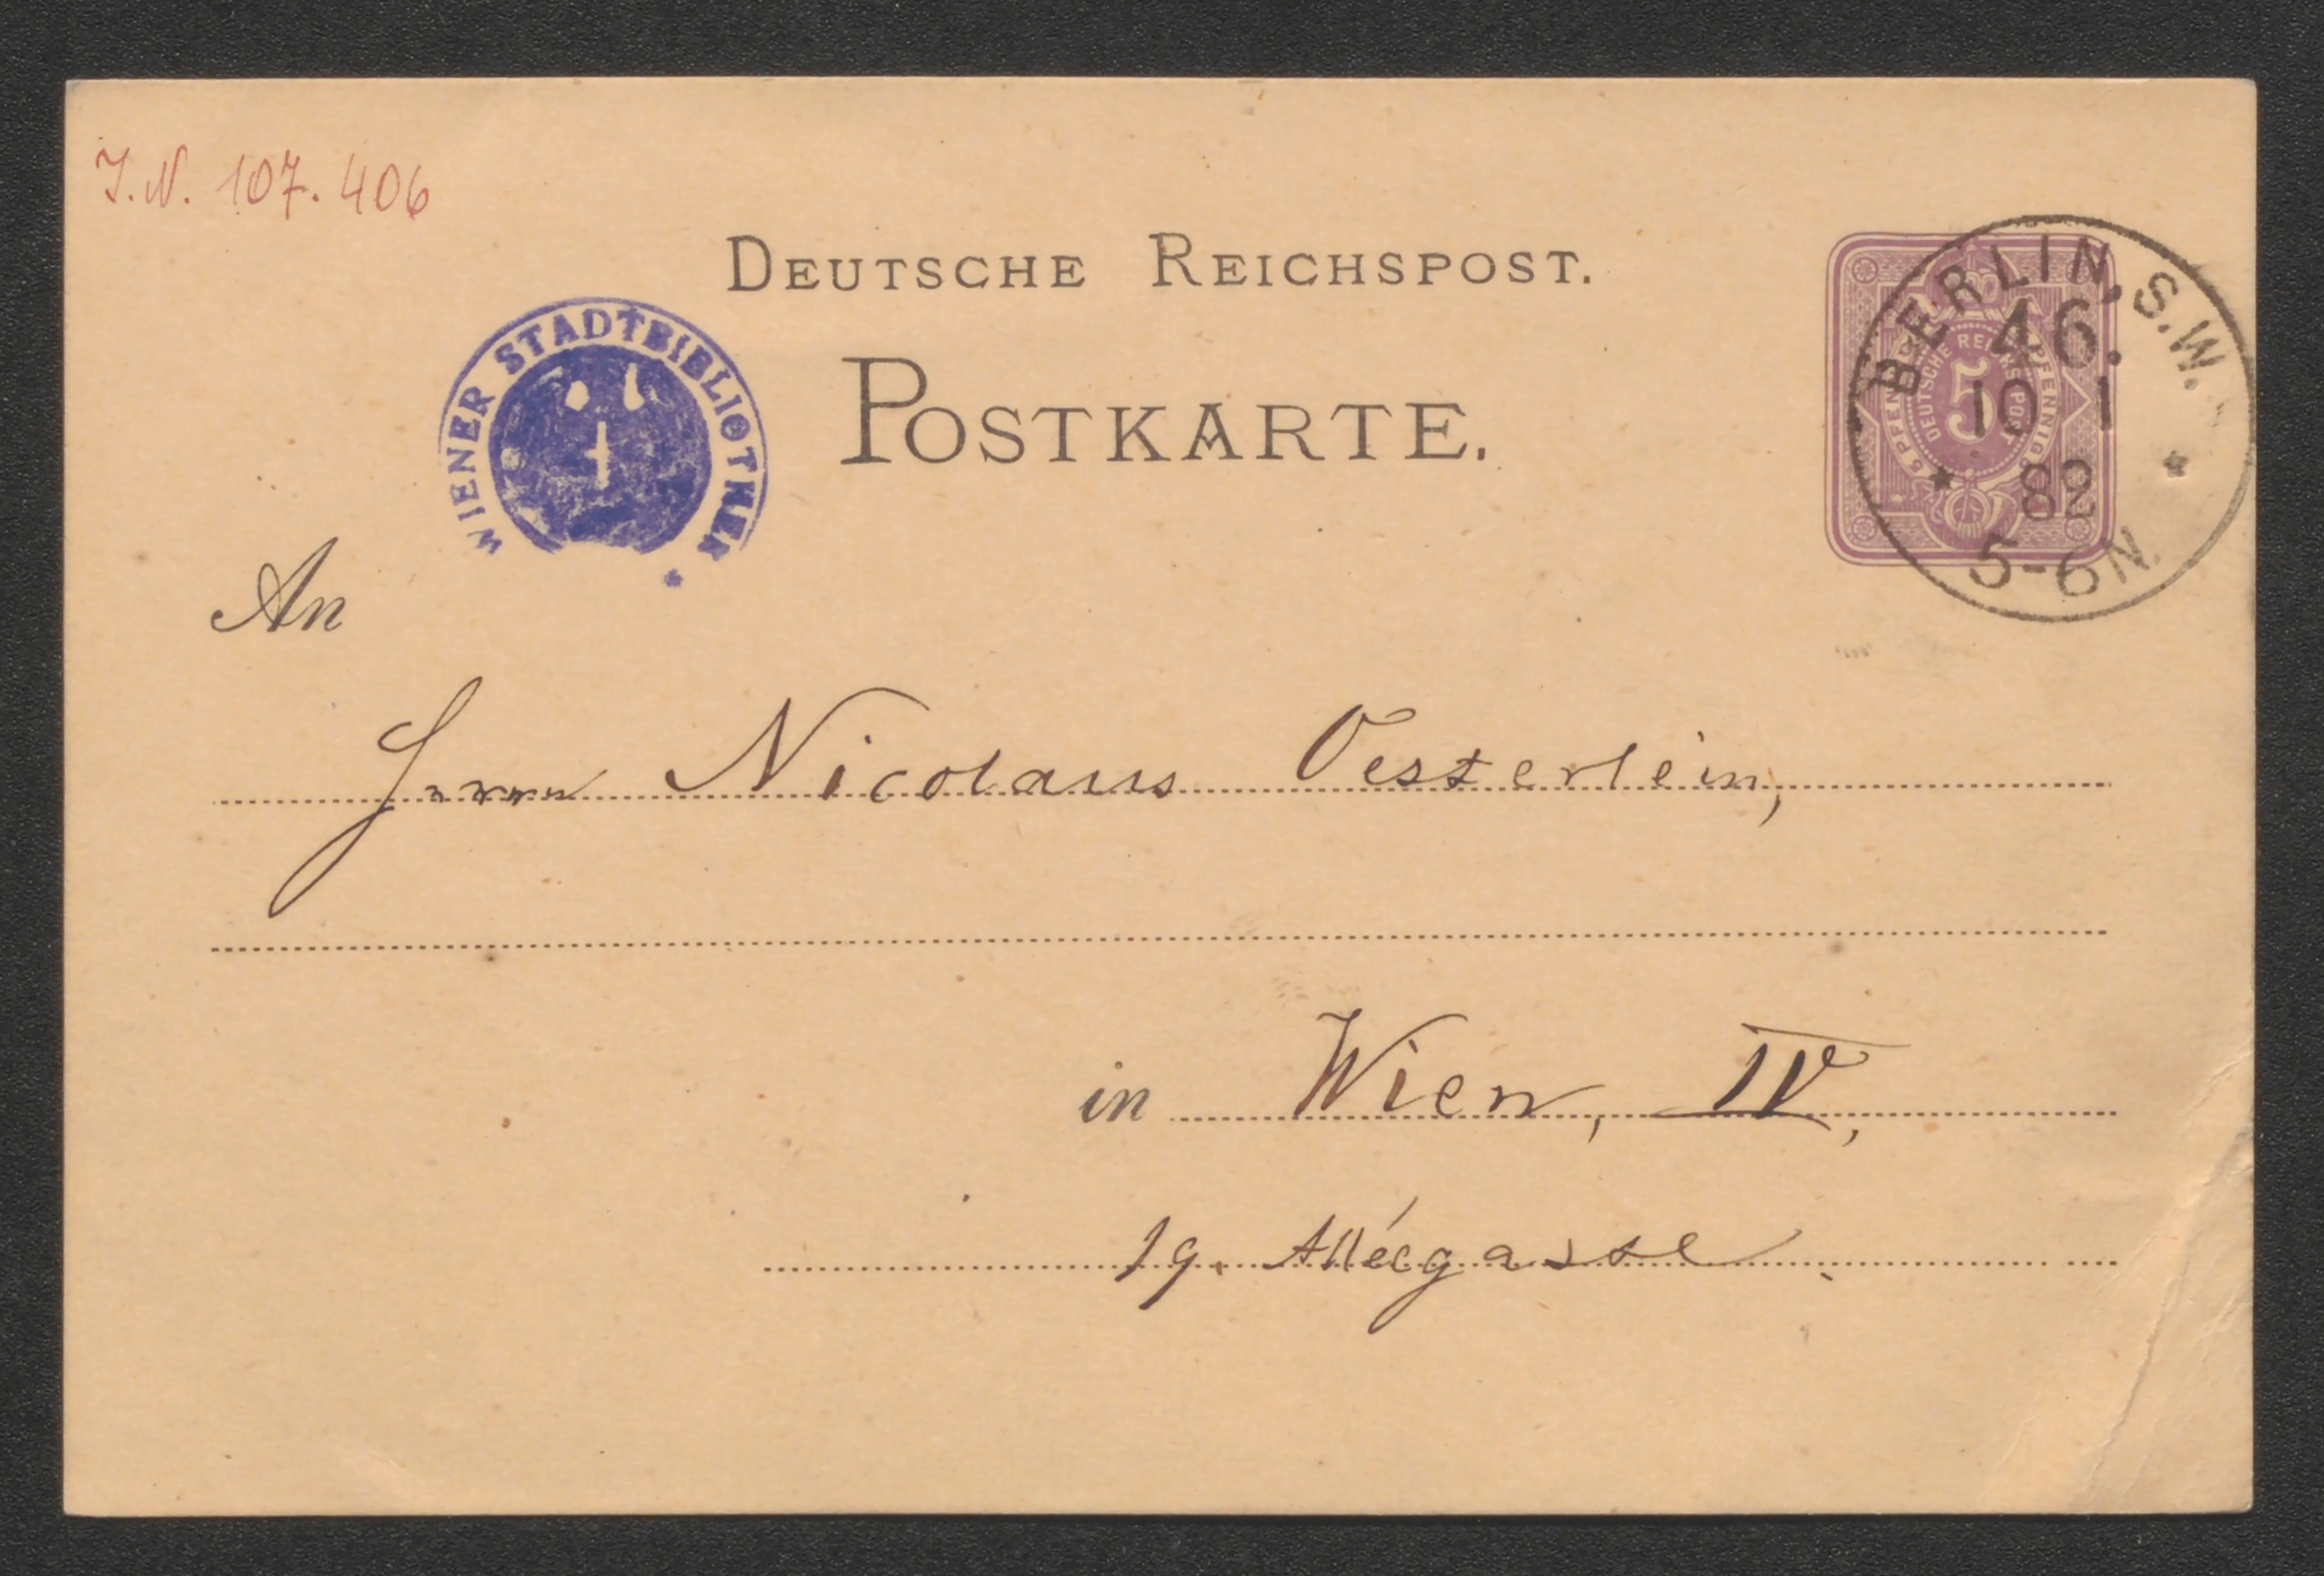 J.N. 107.406
DEUTSCHE REICHSPOST.
WIENER STADTBIBLIOTHEK
POSTKARTE.
5 PFENNIG 5 PFENNIG
DEUTSCHE REICHSPOST
5
BERLIN, S.W.
46.
10 1
82
5-6N.
An
Herrn Nicolaus Oesterlein,
in Wien, IV,
19. Alléegasse.